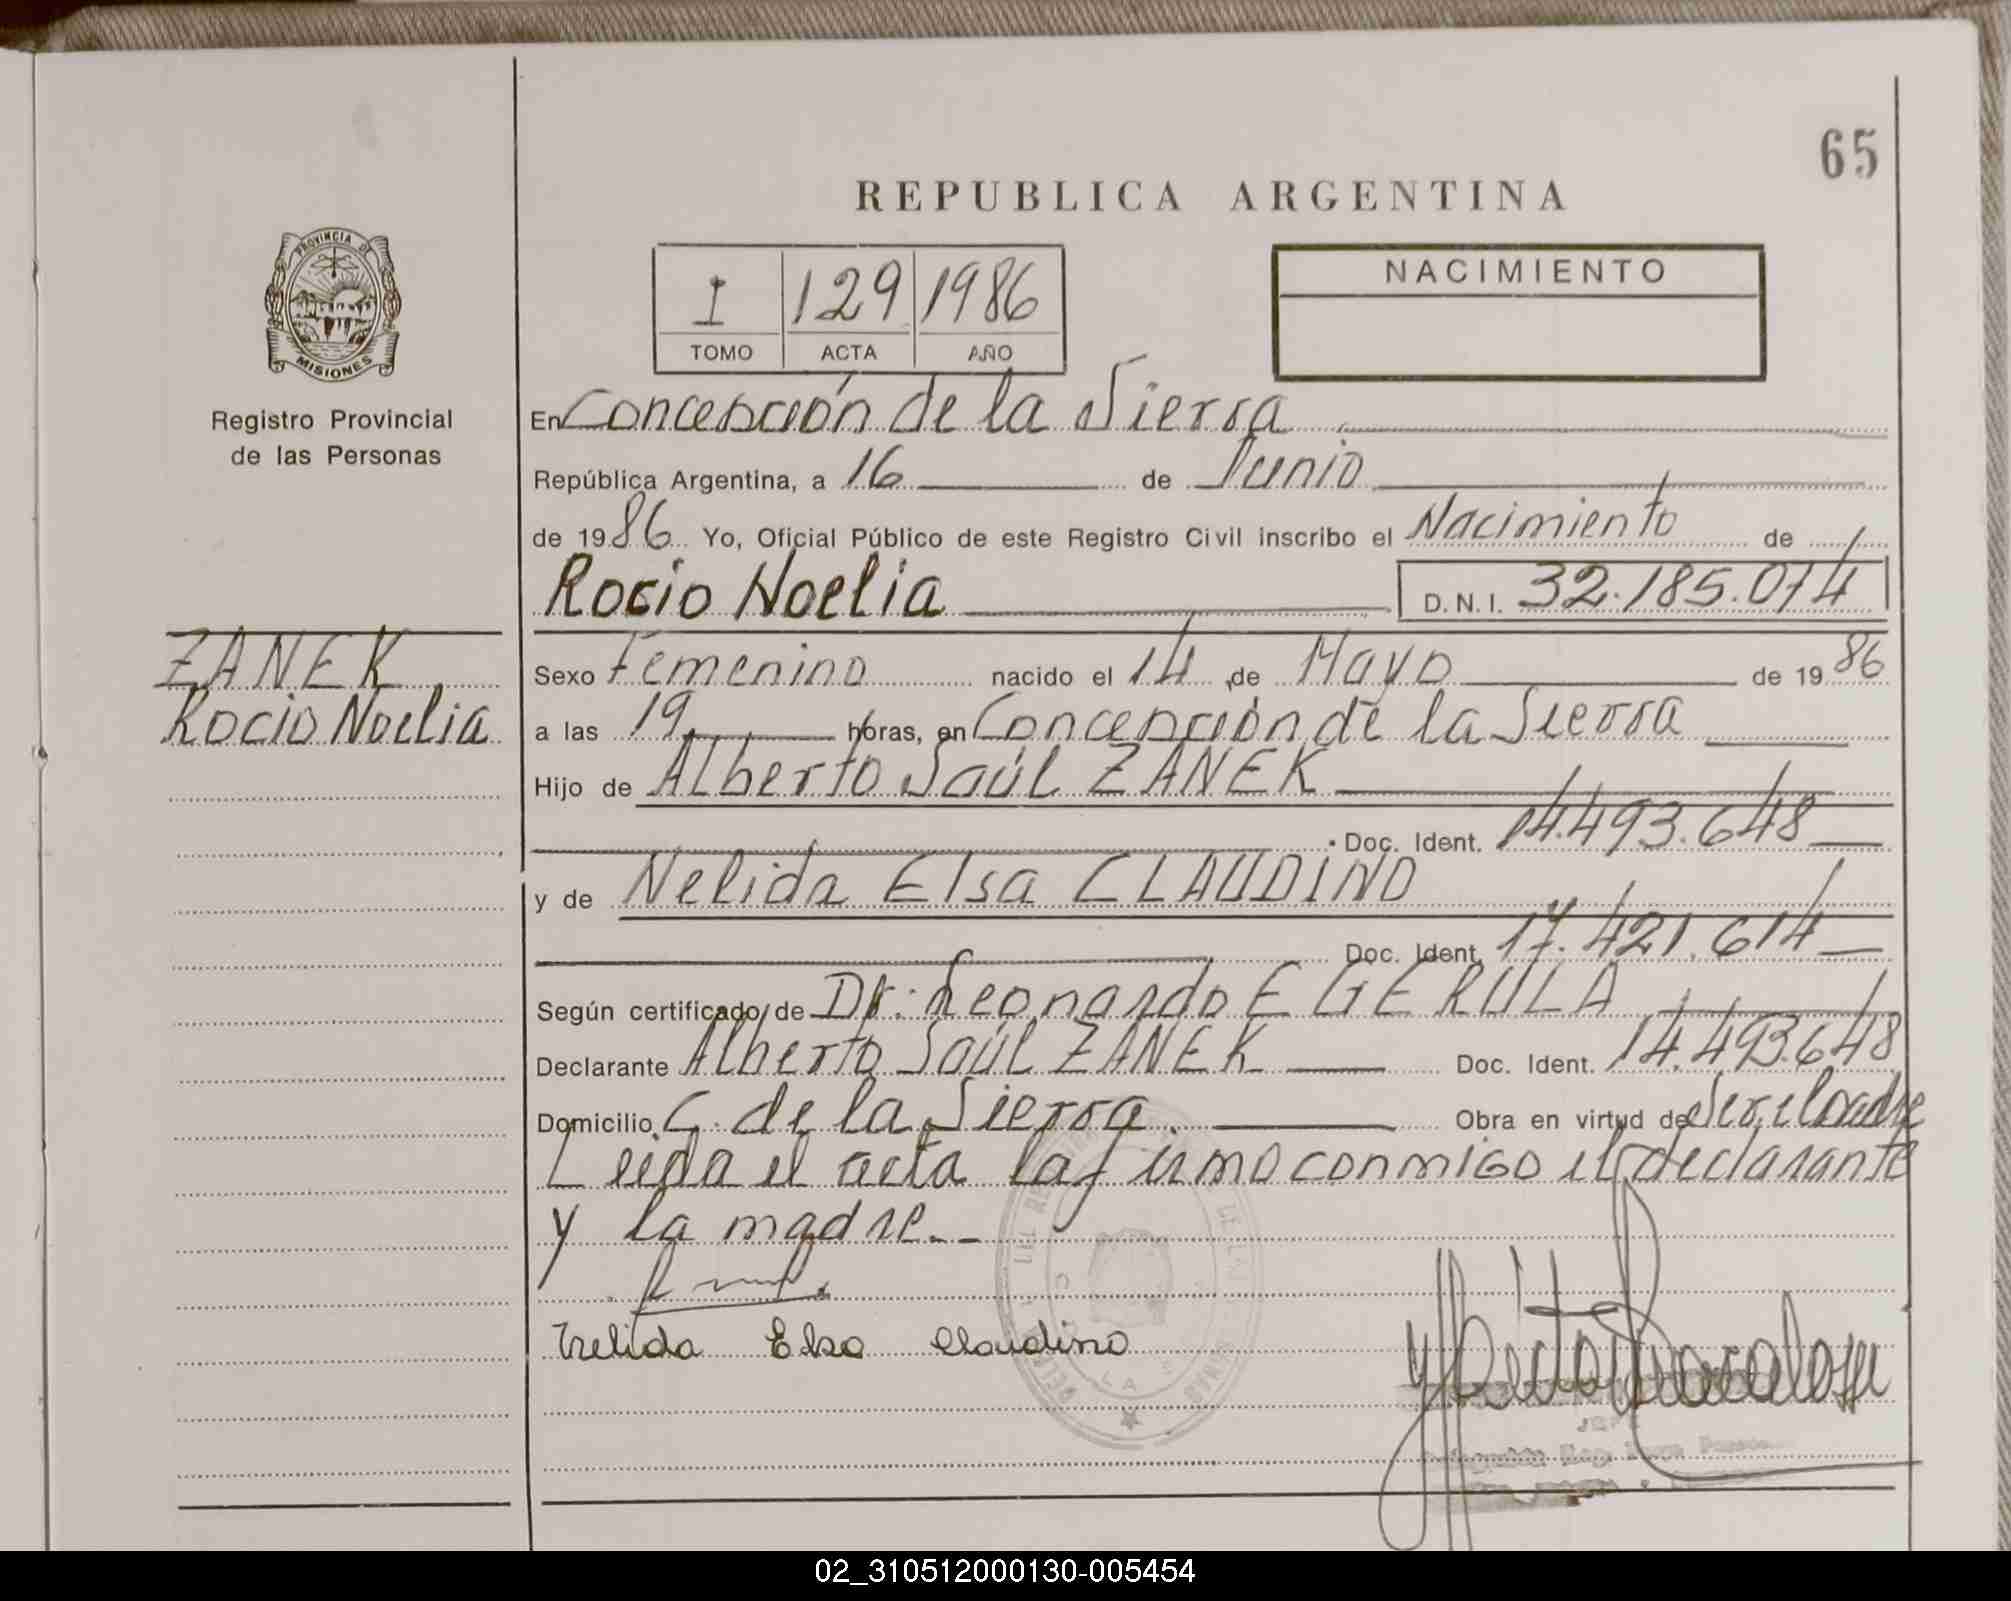 65
REPUBLICA ARGENTINA
PROVINCIA DE
MISIONES
I 129 1986
TOMO ACTA AÑO
NACIMIENTO
Registro Provincial
de las Personas
En Concepción de la Sierra
República Argentina, a 16 de Junio
de 1986 Yo, Oficial Público de este Registro Civil inscribo el Nacimiento de
Rocio Noelia D.N.I. 32.185.074
ZANEK
Rocio Noelia
Sexo Femenino nacido el 14 de Mayo de 1986
a las 19 horas, en Concepción de la Sierra
Hijo de Alberto Saúl ZANEK
Doc. Ident. 14.493.648
y de Nelida Elsa CLAUDINO
Doc. Ident. 17.421.614
Según certificado de Dr. Leonardo E GERULA
Declarante Alberto Saúl ZANEK Doc. Ident. 14.493.648
Domicilio C. de la Sierra. Obra en virtud de Ser el padre
Leida el acta la firmo conmigo el declarante
y la madre.-
Nelida Elsa Claudino
JEFE
02_310512000130-005454